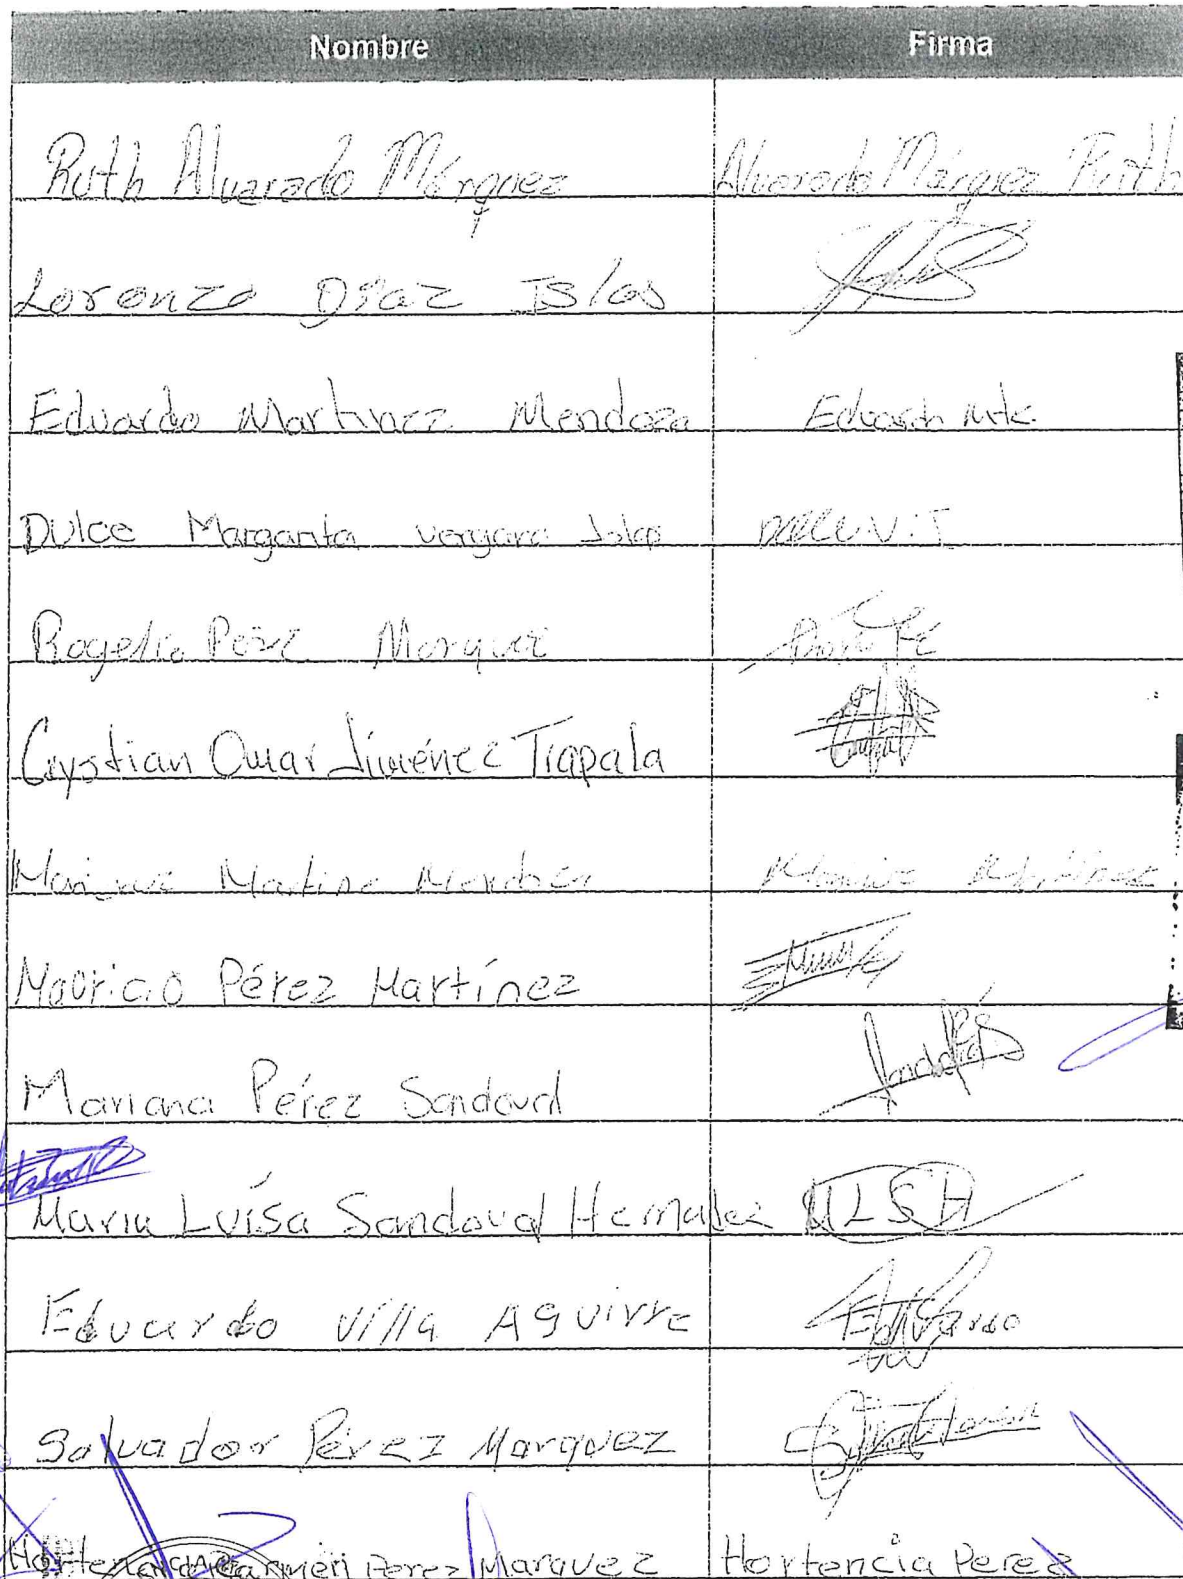 Nombre Firma
Ruth Alvarado Márquez Alvarado Márquez Ruth
Lorenzo Díaz Islas
Eduardo Martinez Mendoza Eduardo Mtz.
Dulce Margarita vergara V.I
Rogelio Pérez Marquez
Crystian Omar Jiménez Trapala
Martinez
Mauricio Pérez Martínez
Mariana Pérez Sandoval
Maria Luisa Sandoval Hernalez MLSH
Eduardo Villa Aguirre Eduardo
Salvador Pérez Marquez
Carmen Perez Marquez Hortencia Perez